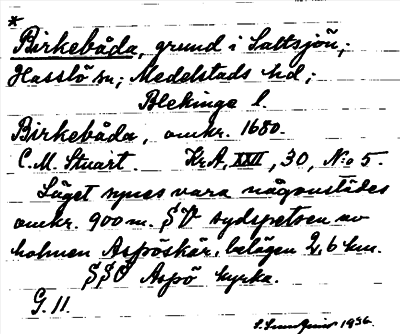 *
Birkebåda, grund i Saltsjön;
Hasslö sn; Medelstads hd;
Blekinge l.
Birkebåda, omkr. 1680.
C. M. Stuart. KrA, XXII, 30, No 5.
Läget synes vara någonstädes
omkr. 900 m. SV sydspetsen av
holmen Aspöskär, belägen 2,6 km.
SSO Aspö kyrka.
G. 11.
1936